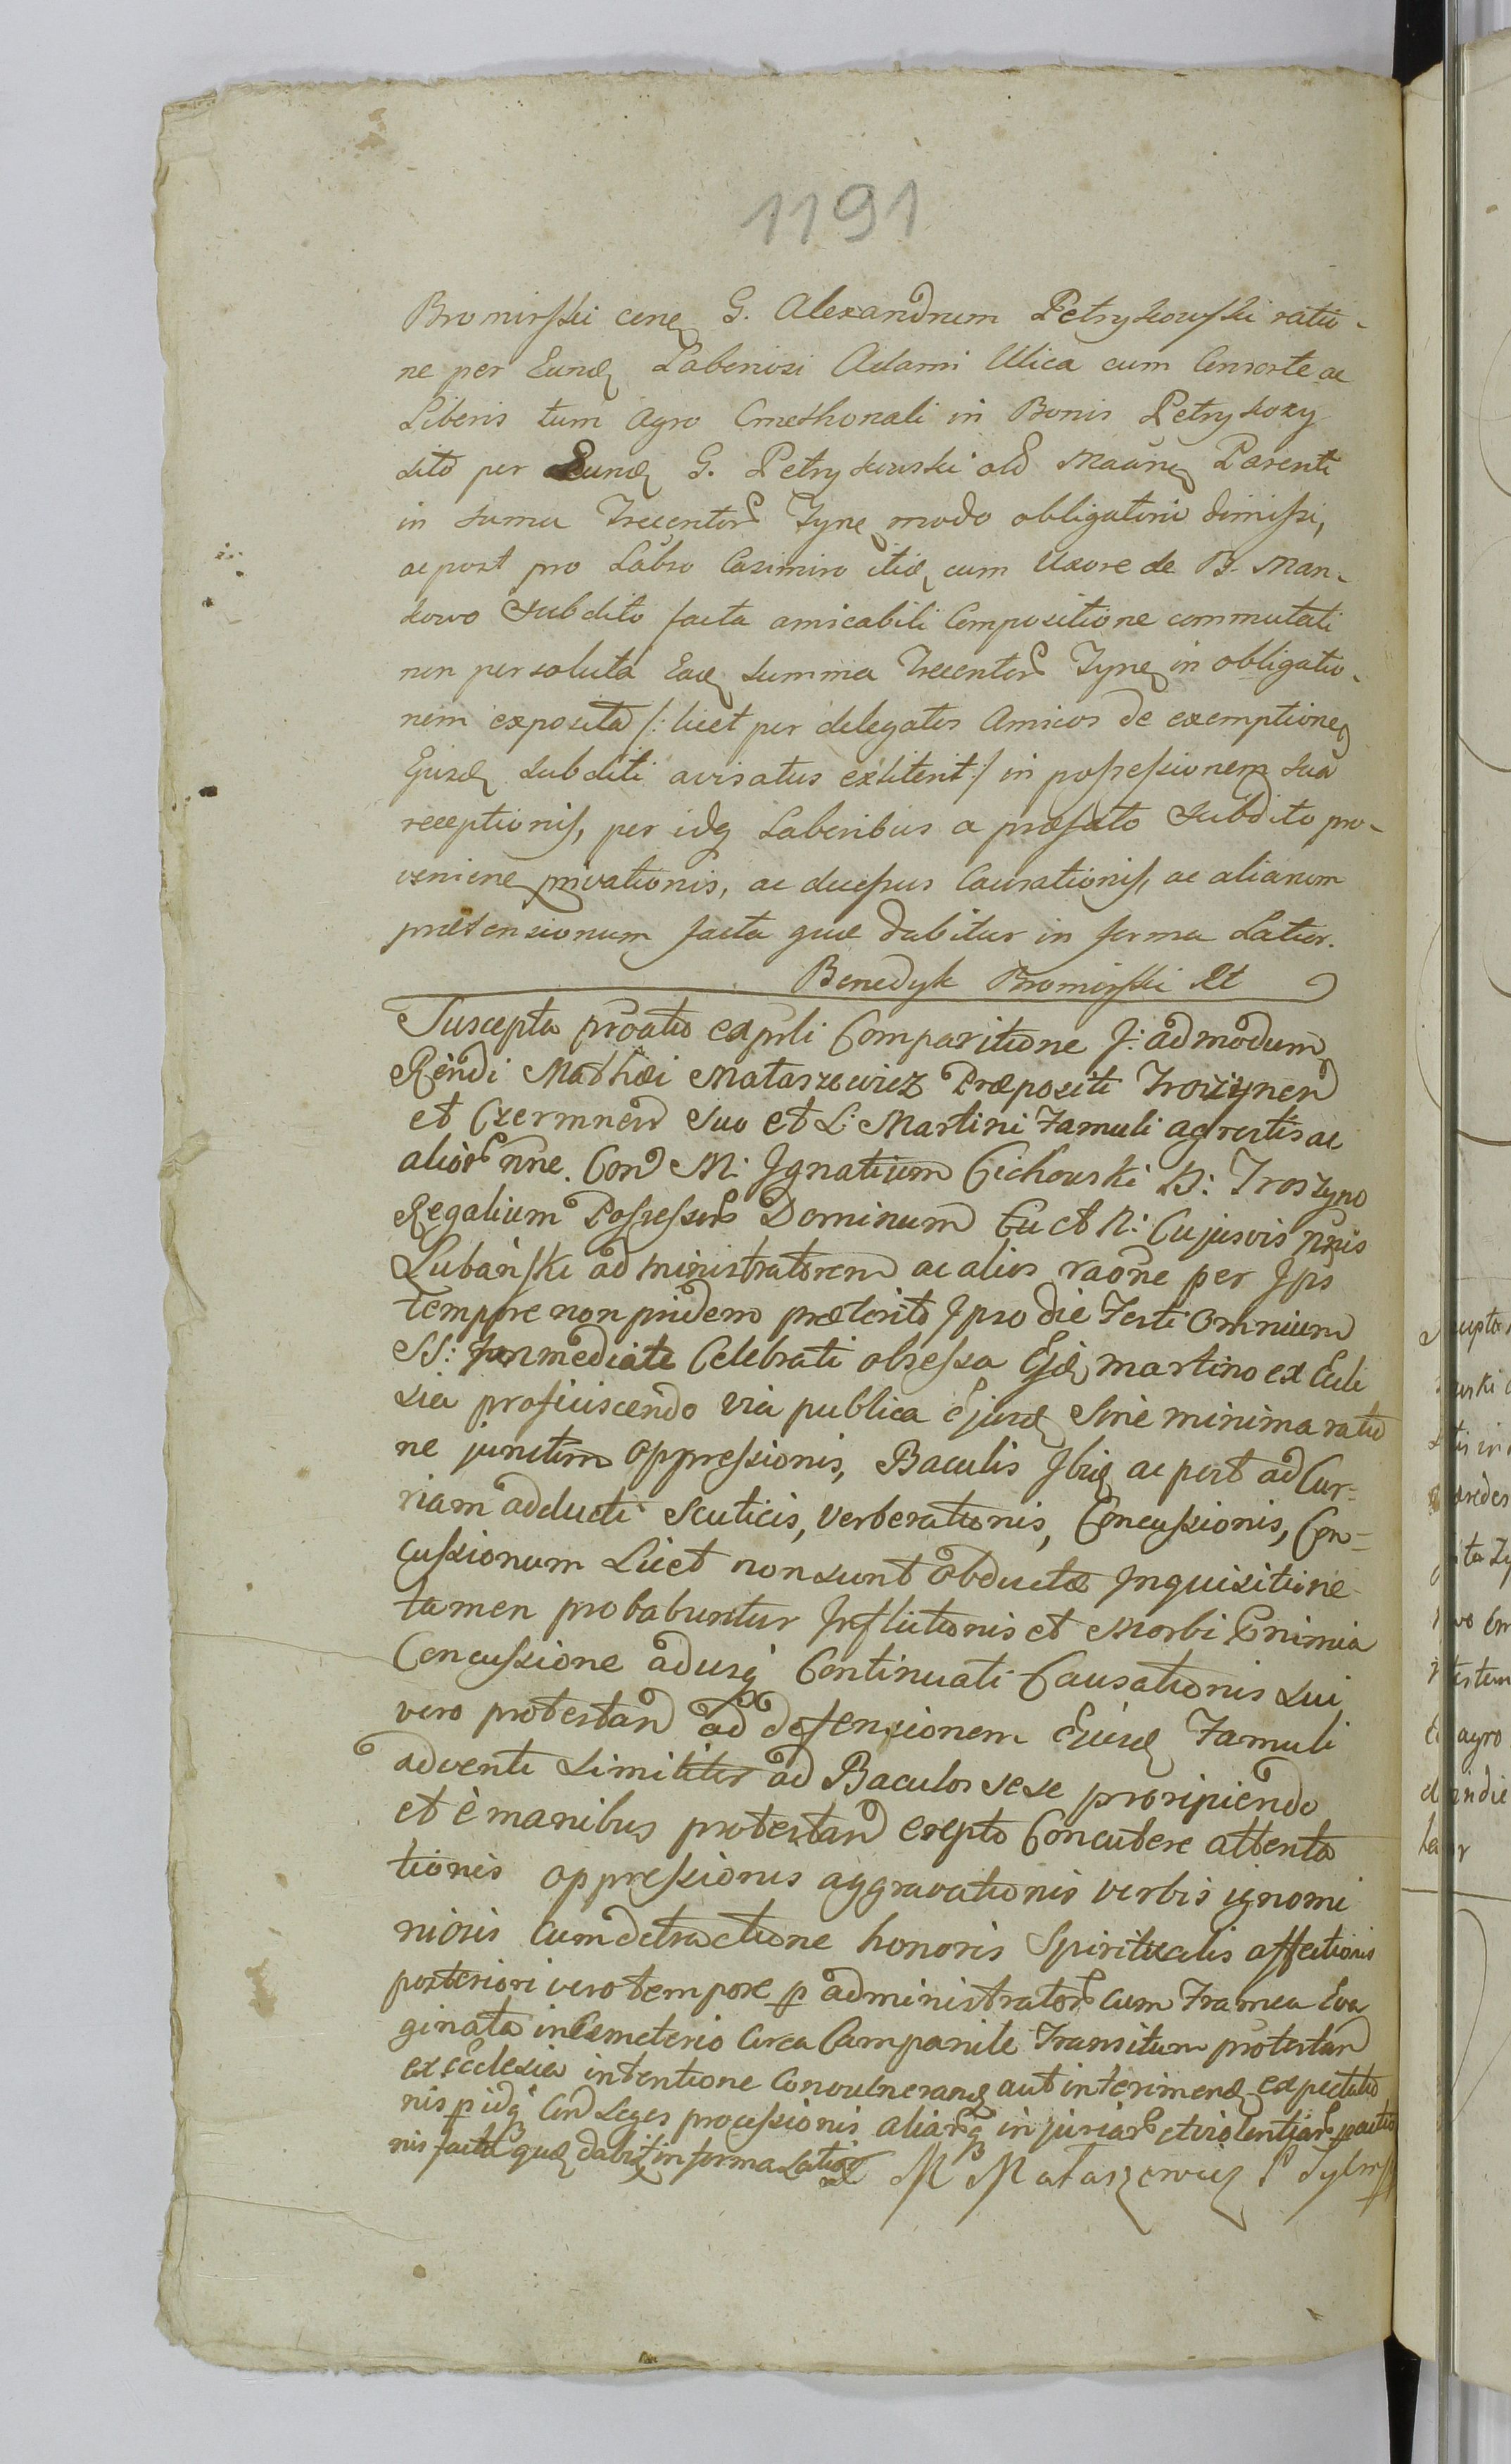 1191
Bromirski cone G. Alexandrum Petrykowski ratio-
ne per Eund Laboriosi Adami Ulica cum Consorte ac
Liberis tum Agro Cmethonali in Bonis Petrykozy
sito per Eund G. Petrykowski olD Parenti
in suma Trecentor Tyne modo obligatorio dimissi,
ac post pro Labso Casimiro itid cum Uxore de B. Man-
kowo Subdito facta amicabili Compositione commutati
non persoluta Ead summa Trecentor Tyne in obligatio-
nem exposita /: licet per delegatos Amicos de exemptione
Ejusd subditi avisatus extiterit :/ in possessionem sua
receptionis, per idq Laboribus a præfato Subdito pro-
veniene privationis, ac Causationis, ac aliarum
prætensionum facta quæ dabitur in forma Latior.
Benedyk Bromirski
Suscepta proatio ex prli Comparitione J: admodum
Rendi Mathæi Mataszewicz Præpositi Troszynen
et Czermnen Suo et L: Martini Famuli agrestis ac
alior nne. Con M: Ignatium Cichowski B: Troszyno
Regalium Possessor Dominum Eu et N: Cujusvis nnis
Lubański administratorem ac alios raone per Ips
tempore non pridem præterito Ipso die Festi Omnium
SS: Immediate Celebrati obsessa Ejd martino ex Eccle
sia proficiscendo via publica ejusd Sine minima ratio
ne junctim Oppressionis, Baculis Ibid ac post ad Cur-
riam adducti Scuticis, Verberationis, Concussionis, Con-
cussionum Licet non sunt Obductæ Inquisitione
tamen probabuntur Inflictionis et Morbi Enimia
Concussione adusq Continuati Causationis Sui
vero protestan ad defensionem Ejusd Famuli
adventi Similiter ad Baculos sese proripiendo
et è manibus protestan erepto Concutere attenta
tionis oppressionis aggravationis verbis ignomi
niosis Cum detractione honoris Spiritualis affectionis
posteriori vero tempore p administrator cum Framea Eva
ginata in Cæmeterio Circa Campanile Transitum protestan
ex Ecclesia intentione Convulnerand aut interimend expectatio
nis p idq Con Leges processionis aliarq injuriar et violentiar
nis facta quæ dabit in forma Latior M Mataszewicz P